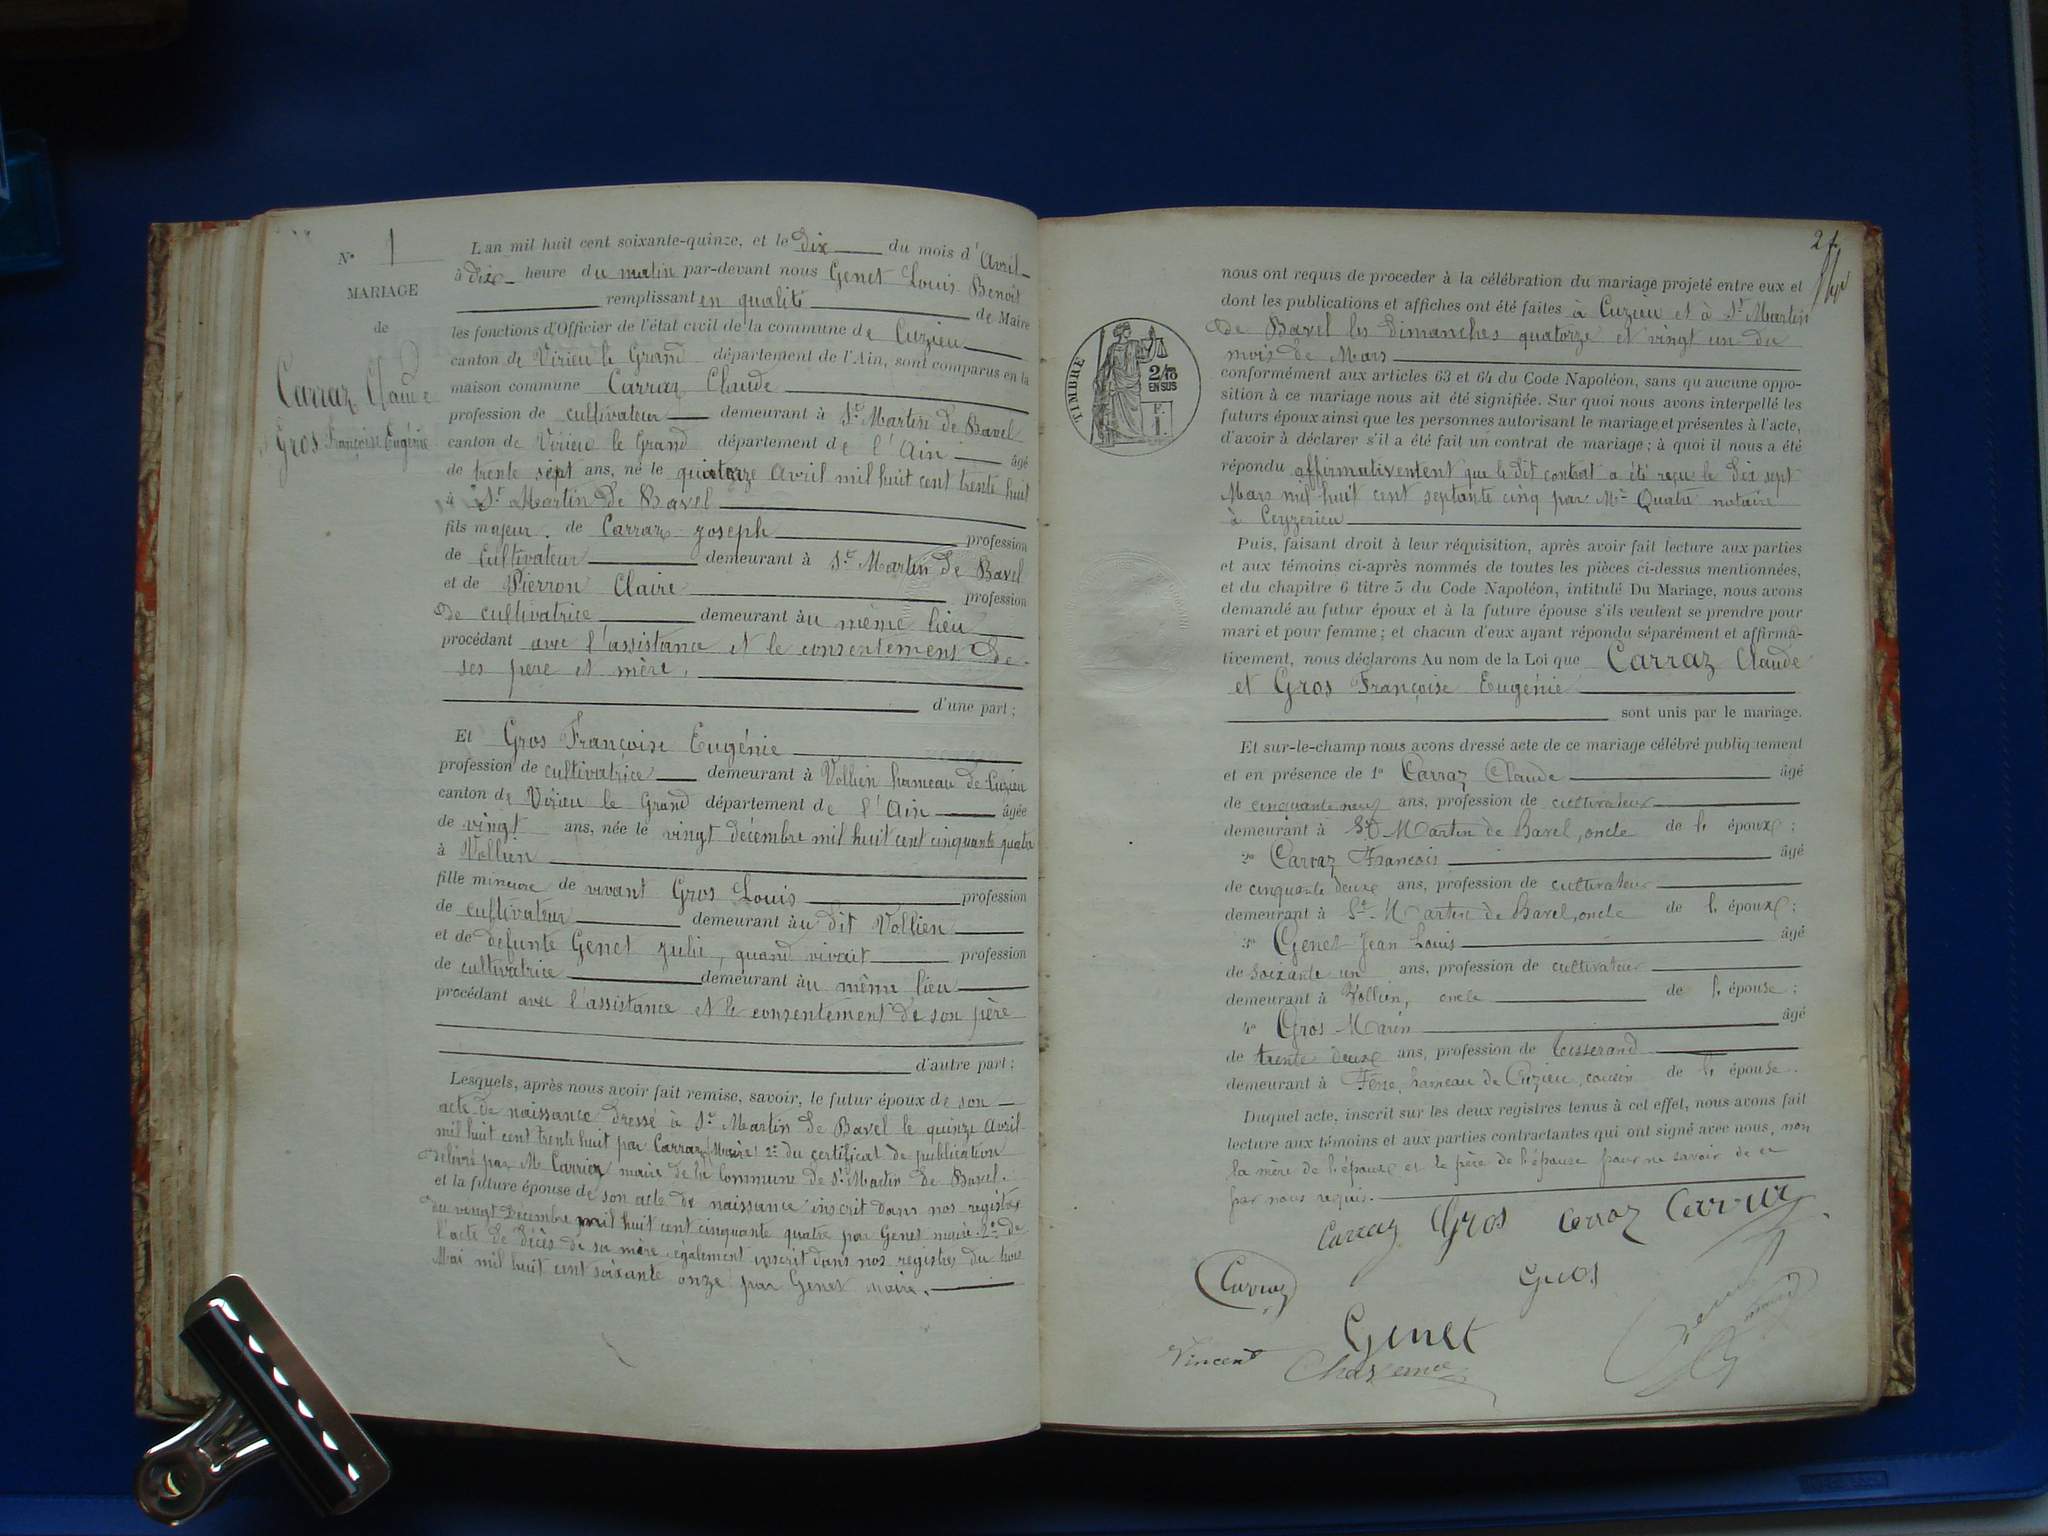 N° 1
MARIAGE
de
Carraz Claude
Gros Françoise Eugénie
L'an mil huit cent soixante-quinze, et le dix du mois d'Avril
à dix heure du matin par-devant nous Genet Louis Benoit
remplissant en qualité de Maire
les fonctions d'Officier de l'état civil de la commune de Cuzieu
canton de Virieu le Grand département de l'Ain, sont comparus en la
maison commune Carraz Claude
profession de cultivateur demeurant à St Martin de Bavel
canton de Virieu le Grand département de l'Ain âgé
de trente sept ans, né le quatorze Avril mil huit cent trente huit
à St Martin de Bavel
fils majeur de Carraz Joseph profession
de Cultivateur demeurant à St Martin de Bavel
et de Pierron Claire profession
de cultivatrice demeurant au même lieu
procédant avec l'assistance et le consentement de
ses père et mère.
d'une part;
Et Gros Françoise Eugénie
profession de cultivatrice demeurant à Vollien hameau de Cuzieu
canton de Virieu le Grand département de l'Ain âgée
de vingt ans, née le vingt décembre mil huit cent cinquante quatre
à Vollien
fille mineure de vivant Gros Louis profession
de cultivateur demeurant au dit Vollien
et de défunte Genet Julie, quand vivait profession
de cultivatrice demeurant au même lieu
procédant avec l'assistance et le consentement de son père
d'autre part;
Lesquels, après nous avoir fait remise, savoir, le futur époux de son
acte de naissance dressé à St Martin de Bavel le quinze Avril
mil huit cent trente huit par Carraz (Maire) 2° du certificat de publication
délivré par M Carrier maire de la Commune de St Martin de Bavel.
et la future épouse de son acte de naissance inscrit dans nos registres
du vingt Décembre mil huit cent cinquante quatre par Genet maire. 2° de
l'acte de décès de sa mère également inscrit dans nos registres du trois
Mai mil huit cent soixante onze par Genet maire.
2
nous ont requis de proceder à la célébration du mariage projeté entre eux et
dont les publications et affiches ont été faites à Cuzieu et à St Martin
de Bavel les Dimanches quatorze et vingt un du
mois de Mars
TIMBRE
2/10
EN SUS
F.
1.
conformément aux articles 63 et 64 du Code Napoléon, sans qu'aucune oppo-
sition à ce mariage nous ait été signifiée. Sur quoi nous avons interpellé les
futurs époux ainsi que les personnes autorisant le mariage et présentes à l'acte,
d'avoir à déclarer s'il a été fait un contrat de mariage; à quoi il nous a été
répondu affirmativement que le dit contrat a été reçu le dix sept
Mars mil huit cent septante cinq par Me Quatre notaire
à Ceyzerieu
Puis, faisant droit à leur réquisition, après avoir fait lecture aux parties
et aux témoins ci-après nommés de toutes les pièces ci-dessus mentionnées,
et du chapitre 6 titre 5 du Code Napoléon, intitulé Du Mariage, nous avons
demandé au futur époux et à la future épouse s'ils veulent se prendre pour
mari et pour femme; et chacun d'eux ayant répondu séparément et affirma-
tivement, nous déclarons Au nom de la Loi que Carraz Claude
et Gros Françoise Eugénie
sont unis par le mariage.
Et sur-le-champ nous avons dressé acte de ce mariage célébré publiquement
et en présence de 1° Carraz Claude âgé
de cinquante neuf ans, profession de cultivateur
demeurant à St Martin de Bavel, oncle de l'époux;
2° Carraz François âgé
de cinquante deux ans, profession de cultivateur
demeurant à St Martin de Bavel, oncle de l'époux;
3° Genet Jean Louis âgé
de soixante un ans, profession de cultivateur
demeurant à Vollien, oncle de l'épouse;
4° Gros Marin âgé
de trente deux ans, profession de tisserand
demeurant à hameau de Cuzieu, cousin de l'épouse.
Duquel acte, inscrit sur les deux registres tenus à cet effet, nous avons fait
lecture aux témoins et aux parties contractantes qui ont signé avec nous, non
la mère de l'époux et le père de l'épouse pour ne savoir de ce
par nous requis.
Carraz Gros Carraz Carraz
Carraz Gros
Genet
Vincent